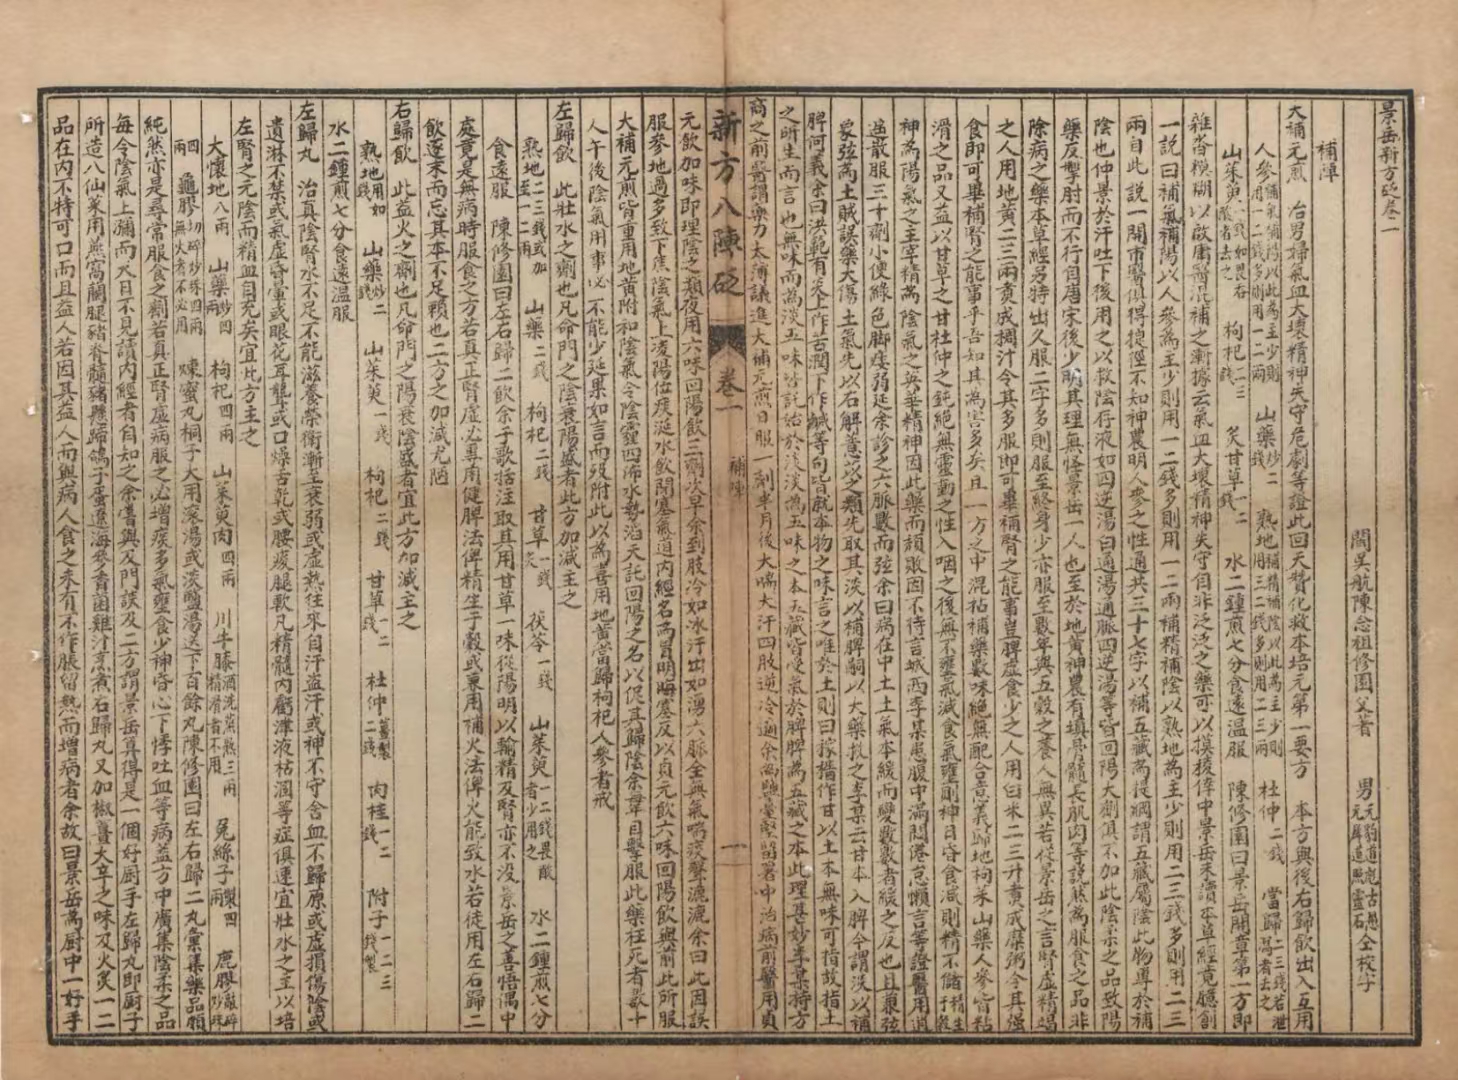 景岳新方砭卷一
閩吳航陳念祖修園父著 男元豹道彪古愚元犀道照靈石仝校字
補陣
大補元煎 治男婦氣血大壞精神失守危劇等證此回天贊化救本培元第一要方 本方與後右歸飲出入互用
人參補氣補陽以此為主少則用一二錢多則用一二兩 山藥炒二錢 熟地補精補陰以此為主少則用二三錢多則用二三兩 杜仲二錢 當歸二三錢若泄瀉者去之
山茱萸一錢如畏酸吞酸者去之 枸杞二三錢 炙甘草一二錢 水二鍾煎七分食遠溫服 陳修園曰景岳開章第一方即
雜沓模糊以啟庸醫混補之漸據云氣血大壞精神失守自非泛泛之藥可以摸稜倖中景岳未讀本草經竟臆創
一說曰補氣補陽以人參為主少則用一二錢多則用一二兩補精補陰以熟地為主少則用二三錢多則用二三
兩自此說一開市醫俱得捷徑不知神農明人參之性通共三十七字以補五臟為提綱謂五臟屬陰此物專於補
陰也仲景於汗吐下後用之以救陰存液如四逆湯白通湯通脈四逆湯等皆回陽大劑俱不加此陰柔之品致陽
藥反掣肘而不行自唐宋後少明其理無怪景岳一人也至於地黃神農有填骨髓長肌肉等說然為服食之品非
除病之藥本草經另特出久服二字多則服至終身少亦服至數年與五穀之養人無異若從景岳之言腎虛精竭
之人用地黃二三兩煮成稠汁令其多服即可畢補腎之能事豈脾虛食少之人用白米二三升煮成糜粥令其強
食即可畢補脾之能事乎吾知其為害多矣且一方之中混拈補藥數味絕無配合意義歸地枸茱山藥人參皆粘
滑之品又益以甘草之甘杜仲之鈍絕無靈動之性入咽之後無不壅氣減食氣壅則神日昏食減則精不儲精生於穀
神為陽氣之主宰精為陰氣之英華精神因此藥而頹敗因不待言城西李某患腹中滿悶倦怠懶言等證醫用逍
遙散服三十劑小便綠色脚痿弱延余診之六脈數而弦余曰病在中土土氣本緩而變數數者緩之反也且兼弦
象弦為土賊誤藥大傷土氣先以石膏薏苡之類先取其淡以補脾嗣以大藥救之李某云甘本入脾今謂淡以補
脾何義余曰洪範有炎上作苦潤下作鹹等句皆就本物之味言之唯於土則曰稼穡作甘以土本無味可指故指土
之所生而言也無味而為淡五味皆託始於淡淡為五味之本五臟皆受氣於脾脾為五臟之本此理甚妙李某持方
商之前醫謂藥力太薄議進大補元煎日服一劑半月後大喘大汗四肢逆冷適余為鹽臺醫留署中治病前醫用貞
元飲加味即理陰之類夜用六味回陽飲三劑次早余到肢冷如冰汗出如湧六脈全無氣喘痰聲漉漉余曰此因誤
服參地過多致下焦陰氣上凌陽位痰涎水飲閉塞氣道內經名為冒明晦塞反以貞元飲六味回陽飲與前此所服
大補元煎皆重用地黃附和陰氣令陰霾四佈水勢滔天託回陽之名以促其歸陰余每目擊服此藥枉死者數十
人午後陰氣用事必不能少延果如言而歿附此以為喜用地黃當歸枸杞人參者戒
左歸飲 此壯水之劑也凡命門之陰衰陽盛者此方加減主之
熟地二三錢或加至一二兩 山藥二錢 枸杞二錢 甘草炙一錢 茯苓一錢 山茱萸一二錢畏酸者少用之 水二鍾煎七分
食遠服 陳修園曰左右歸二飲余于歌括注取其用甘草一味從陽明以輸精及腎亦不沒景岳之善悟偶中
處竟是無病時服食之方若真正腎虛必專用健脾法俾精生于穀或兼用補火法俾火能致水若徒用左右歸二
飲逐末而忘其本不足賴也二方之加減尤陋
右歸飲 此益火之劑也凡命門之陽衰陰盛者宜此方加減主之
熟地用如前 山藥炒二錢 山茱萸一錢 枸杞二錢 甘草一二錢 杜仲薑製二錢 肉桂一二錢 附子製一二三錢
水二鍾煎七分食遠溫服
左歸丸 治真陰腎水不足不能滋養榮衛漸至衰弱或虛熱往來自汗盜汗或神不守舍血不歸原或虛損傷陰或
遺淋不禁或氣虛昏暈或眼花耳聾或口燥舌乾或腰痠腿軟凡精髓內虧津液枯涸等症俱速宜壯水之主以培
左腎之元陰而精血自充矣宜此方主之
大懷地八兩 山藥炒四兩 枸杞四兩 山茱萸肉四兩 川牛膝酒洗蒸熟三兩精滑者不用 菟絲子製四兩 鹿膠敲碎炒珠
四兩 龜膠切碎炒珠四兩無火者不必用 煉蜜丸桐子大用滾湯或淡鹽湯送下百餘丸陳修園曰左右歸二丸彙集藥品頗
純然亦是尋常服食之劑若真正腎虛病服之必增痰多氣壅食少神昏心下悸吐血等病蓋方中廣集陰柔之品
每令陰氣上彌而天日不見讀內經者自知之余嘗與及門談及二方謂景岳算得是一個好厨手左歸丸即厨子
所造八仙菜用燕窩蘭腿豬脊髓豬懸蹄鴿子蛋遼海參香菌雞汁烹煮右歸丸又加椒薑大辛之味及火炙一二
品在內不特可口而且益人若因其益人而與病人食之未有不作脹留熱而增病者余故曰景岳為厨中一好手
新方八陣砭 卷一 補陣 一